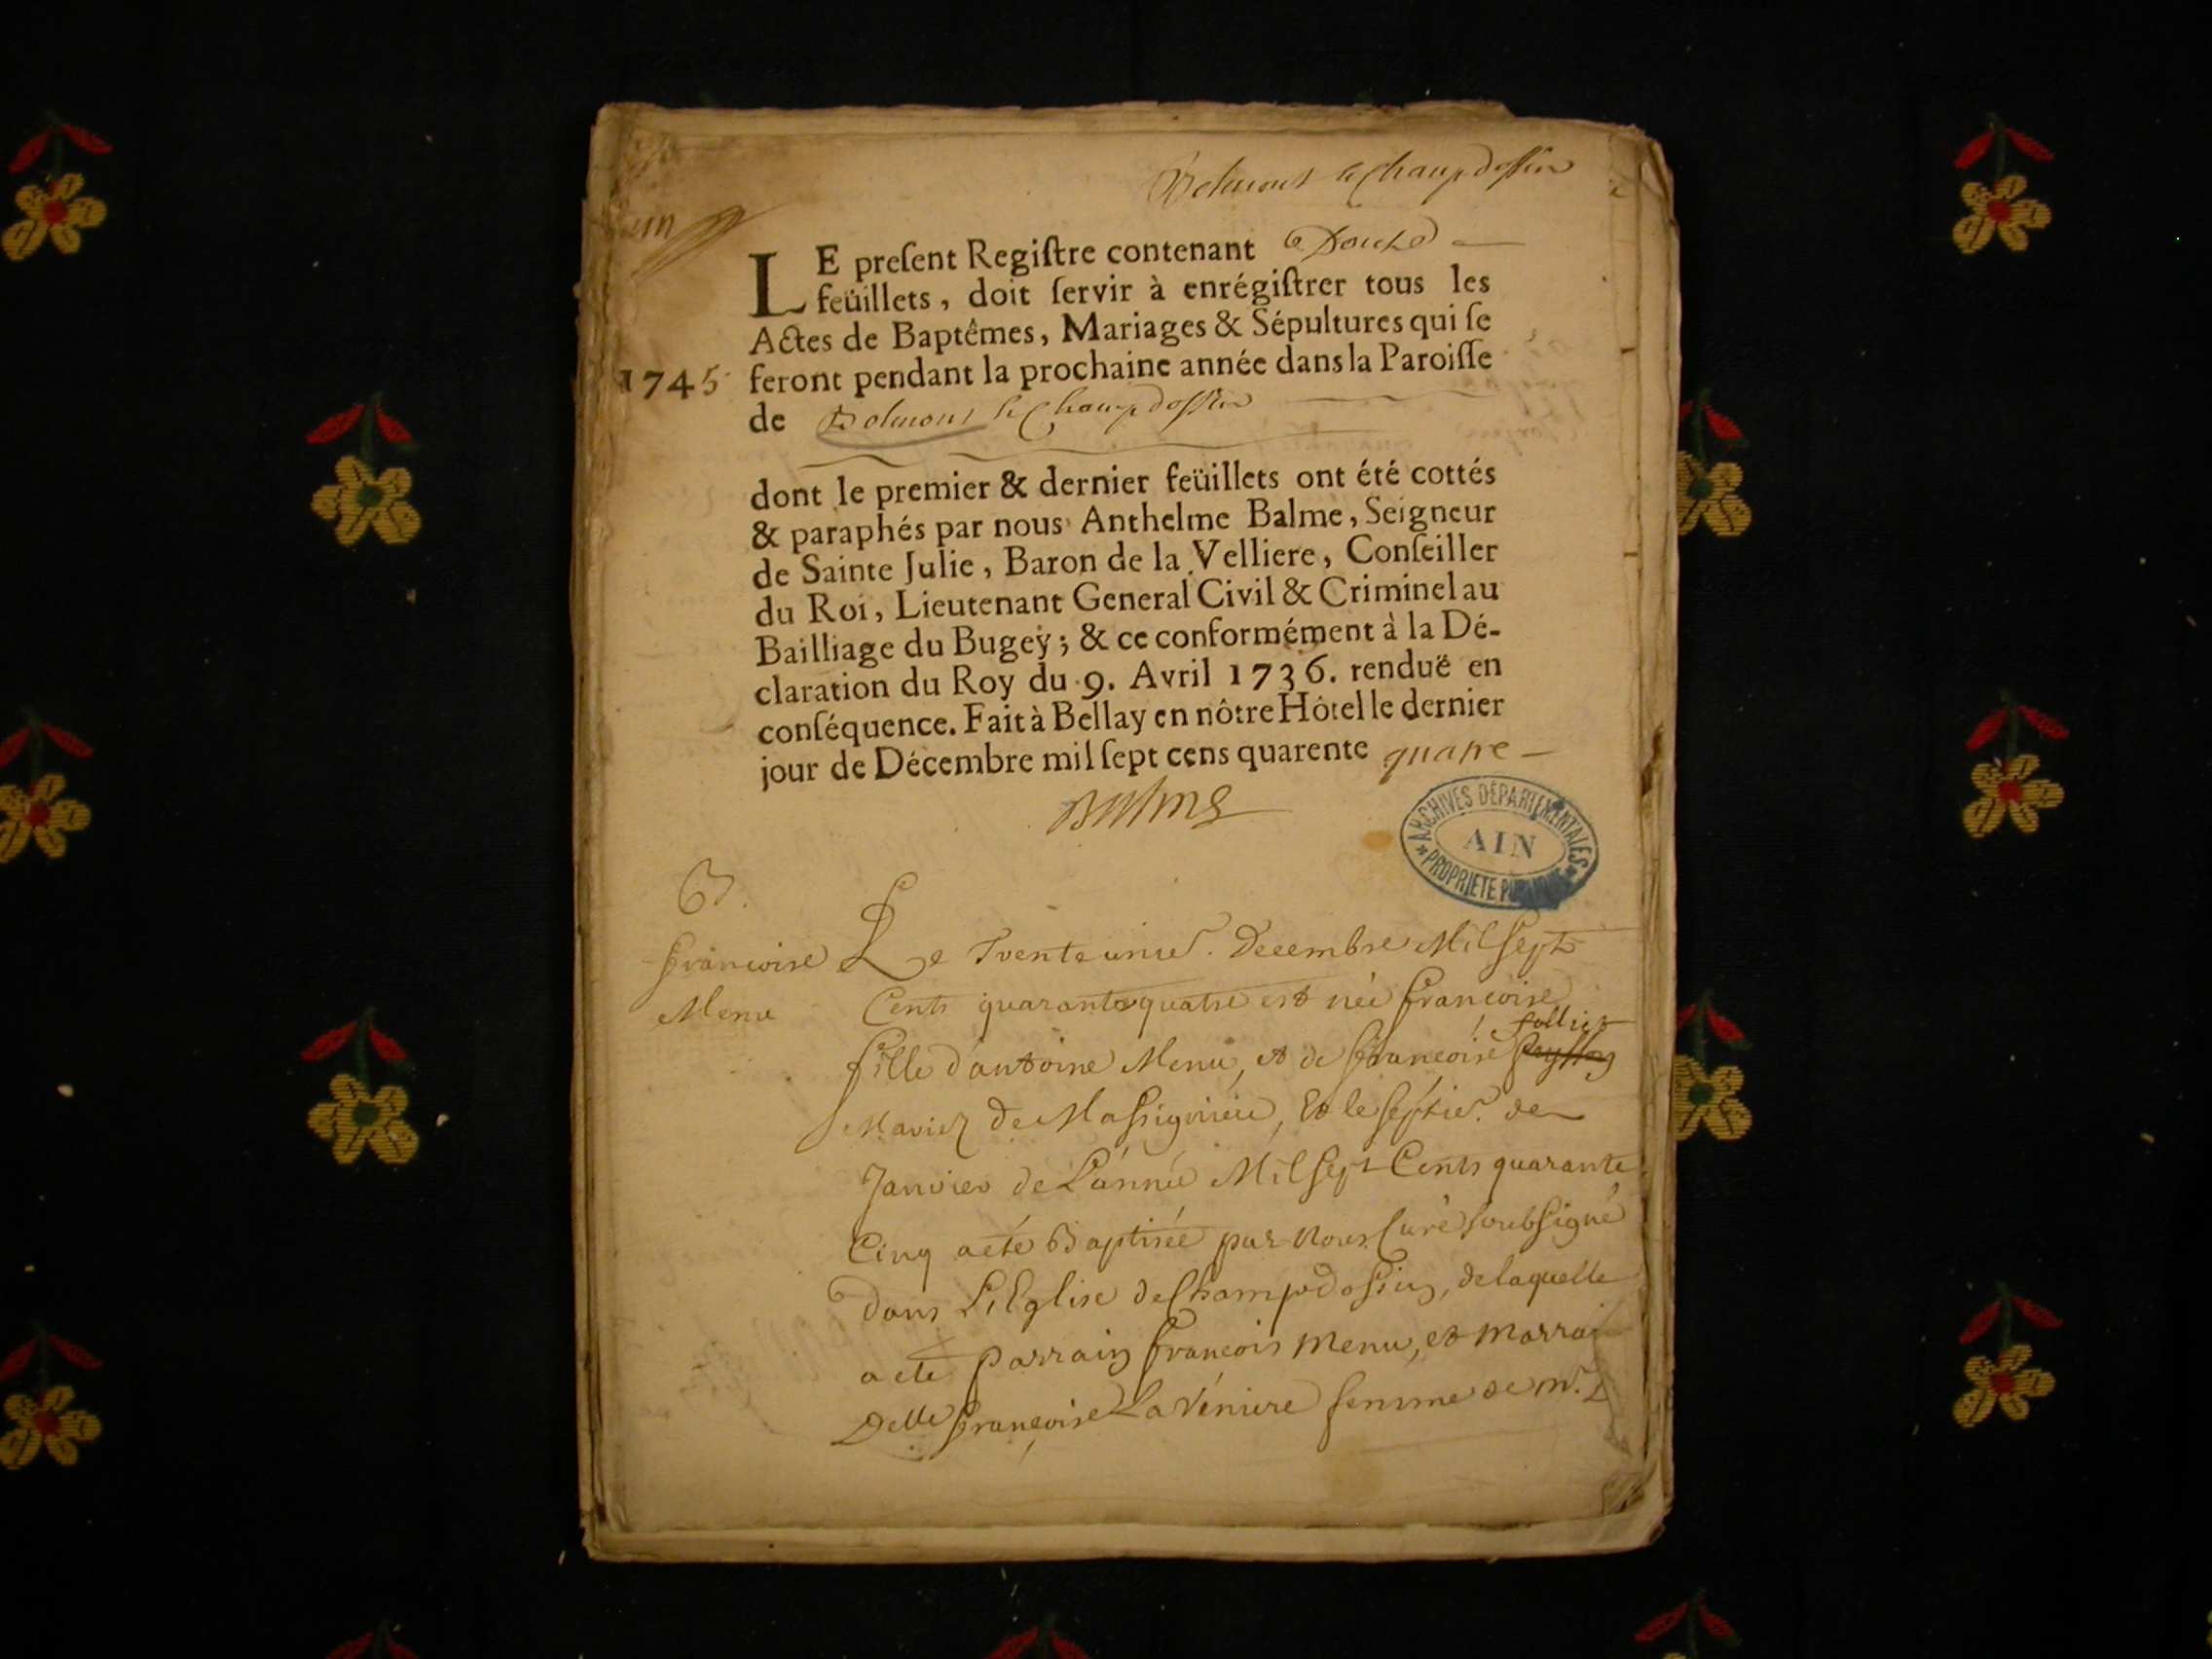 Belmont le Champdossin
un
LE preſent Regiſtre contenant Douze
feüillets, doit ſervir à enrégiſtrer tous les
Actes de Baptêmes, Mariages & Sépultures qui ſe
1745 feront pendant la prochaine année dans la Paroiſſe
de Belmont le Champdossin
dont le premier & dernier feüillets ont été cottés
& paraphés par nous Anthelme Balme, Seigneur
de Sainte Julie, Baron de la Velliere, Conſeiller
du Roi, Lieutenant General Civil & Criminel au
Bailliage du Bugeÿ; & ce conformément à la Dé-
claration du Roy du 9. Avril 1736. renduë en
conſéquence. Fait à Bellay en nôtre Hôtel le dernier
jour de Décembre mil ſept cens quarente quatre
Balme
ARCHIVES DEPARTEMENTALES
AIN
PROPRIETE PUBLIQUE
B.
francoise Le Trente unie. Decembre Mil Sept
Menu Cents quarante quatre est née francoise
follier
fille d'antoine Menu, et de francoise
Mariez de Massignieu, Et le septie. de
Janvier de L'année Mil Sept Cents quarante
Cinq a été Baptisée par Nous Curé soubsigné
dans L'Eglise de Champdossin, de laquelle
a ete parrain francois Menu, et marrai
Delle francoise La Veniere femme de mr.